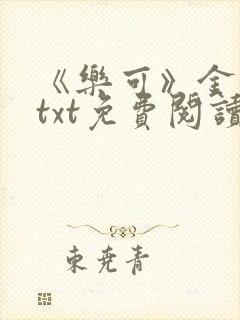 《樂可》全
txt免費閱讀
東堯青